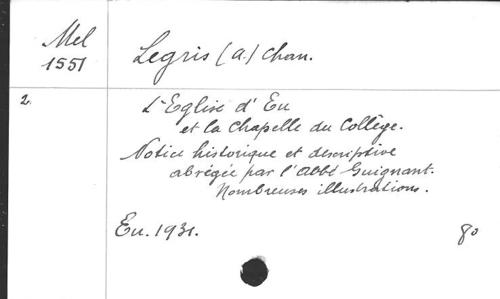 Mel
1551
Legris (A.) Chan.
2.
L'Eglise d'Eu
et la Chapelle du Collège.
Notice historique et descriptive
abrégée par l'Abbé Guignant.
Nombreuses illustrations.
Eu. 1931.
8o